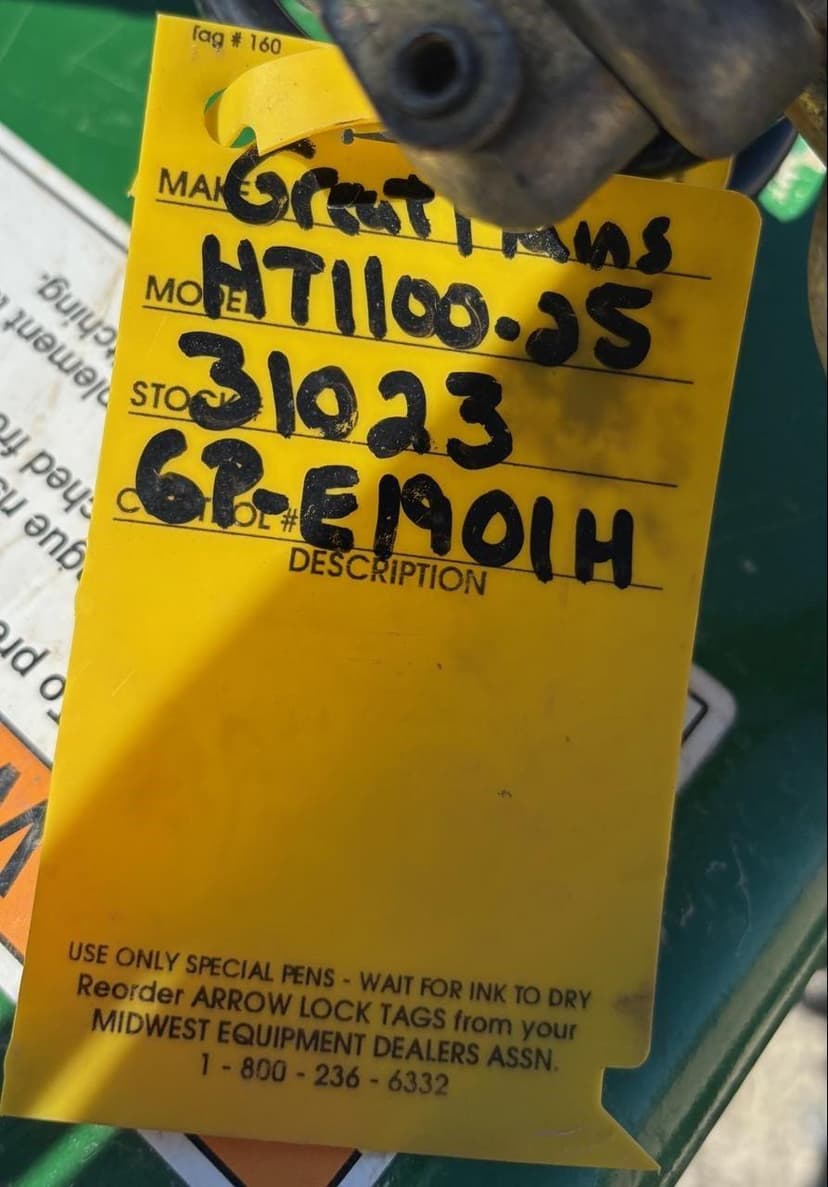 Tag # 160
MAKE Great Plains
MODEL HT1100-25
STOCK 31023
CONTROL # GP-E1901H
DESCRIPTION
USE ONLY SPECIAL PENS - WAIT FOR INK TO DRY
Reorder ARROW LOCK TAGS from your
MIDWEST EQUIPMENT DEALERS ASSN.
1 - 800 - 236 - 6332
plement
tching.
ched fro
gue
To pre
W